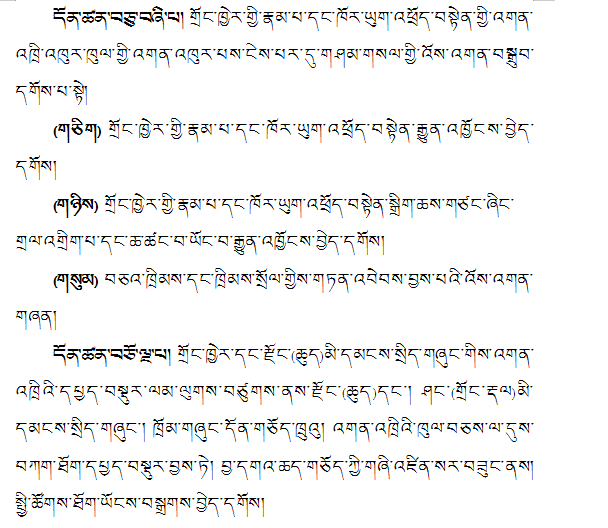 དོན་ཚན་བཅུ་བཞི་པ། གྲོང་ཁྱེར་གྱི་རྣམ་པ་དང་ཁོར་ཡུག་འཕྲོད་བསྟེན་གྱི་འགན་
འཁྲི་འཁུར་ཁུལ་གྱི་འགན་འཁུར་པས་ངེས་པར་དུ་གཤམ་གསལ་གྱི་འོས་འགན་བསྒྲུབ་
དགོས་པ་སྟེ།
(གཅིག) གྲོང་ཁྱེར་གྱི་རྣམ་པ་དང་ཁོར་ཡུག་འཕྲོད་བསྟེན་རྒྱུན་འཁྱོངས་བྱེད་
དགོས།
(གཉིས) གྲོང་ཁྱེར་གྱི་རྣམ་པ་དང་ཁོར་ཡུག་འཕྲོད་བསྟེན་སྒྲིག་ཆས་གཙང་ཞིང་
གྲལ་འགྲིག་པ་དང་ཆ་ཚང་བ་ཡོང་བ་རྒྱུན་འཁྱོངས་བྱེད་དགོས།
(གསུམ) བཅའ་ཁྲིམས་དང་ཁྲིམས་སྲོལ་གྱིས་གཏན་འབེབས་བྱས་པའི་འོས་འགན་
གཞན།
དོན་ཚན་བཅོ་ལྔ་པ། གྲོང་ཁྱེར་དང་རྫོང་(ཆུད)མི་དམངས་སྲིད་གཞུང་གིས་འགན་
འཁྲིའི་དཔྱད་བསྡུར་ལམ་ལུགས་བཙུགས་ནས་རྫོང་(ཆུད)དང་། ཤང་(གྲོང་རྡལ)མི་
དམངས་སྲིད་གཞུང་། ཁྲོམ་གཞུང་དོན་གཅོད་ཁྲུའུ། འགན་འཁྲིའི་ཁུལ་བཅས་ལ་དུས་
བཀག་ཐོག་དཔྱད་བསྡུར་བྱས་ཏེ། བྱ་དགའ་ཆད་གཅོད་ཀྱི་གཞི་འཛིན་སར་བཟུང་ནས།
སྤྱི་ཚོགས་ཐོག་ཡོངས་བསྒྲགས་བྱེད་དགོས།